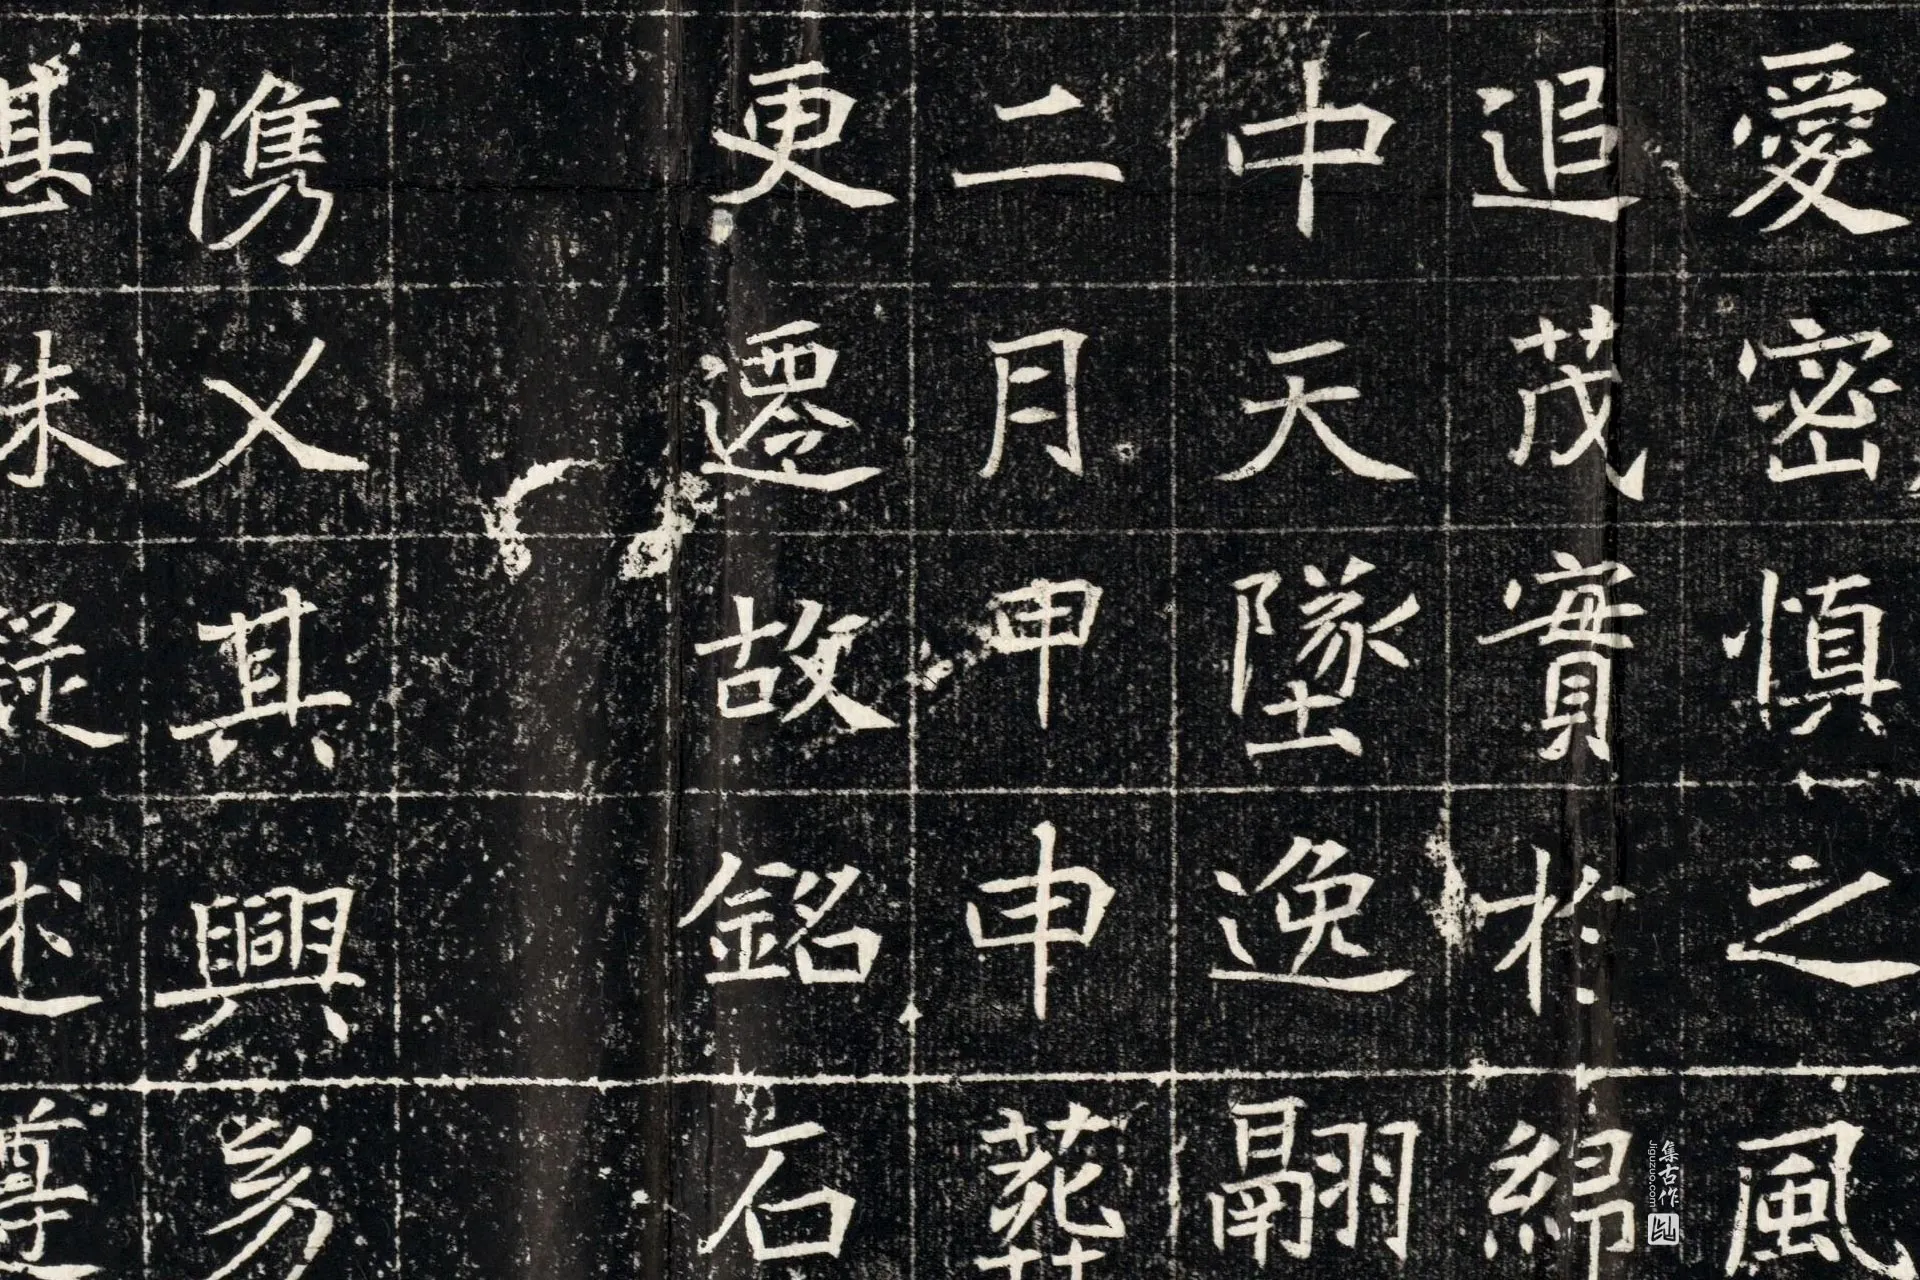 愛密慎之風
追茂實於綿
中天墜逸翮
二月甲申葬
更遷故銘石
儁乂其興
述
集古作
jiguzuo.com